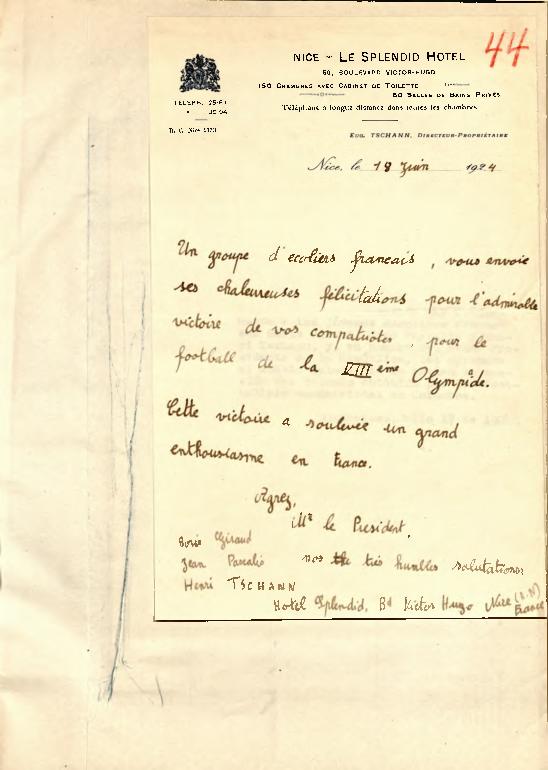 44
NICE - LE SPLENDID HOTEL
50, BOULEVARD VICTOR-HUGO
150 CHAMBRES AVEC CABINET DE TOILETTE
80 SALLES DE BAINS PRIVÉS
Téléphone à longue distance dans toutes les chambres
TÉLÉPH.
R. C. Nice
EUG. TSCHANN, DIRECTEUR-PROPRIÉTAIRE
Nice, le 19 Juin 1924
Un groupe d'ecoliers francais, vous envoie
ses chaleureuses félicitations pour l'admirable
victoire de vos compatriotes, pour le
football de la VIII ème Olympiade.
Cette victoire a soulevée un grand
enthousiasme en France.
Agrez,
Mr le President,
Giraud
Jean nos très humbles salutations
Henri TSCHANN
Hotel Splendid, Bd Victor Hugo Nice (A.M)
France